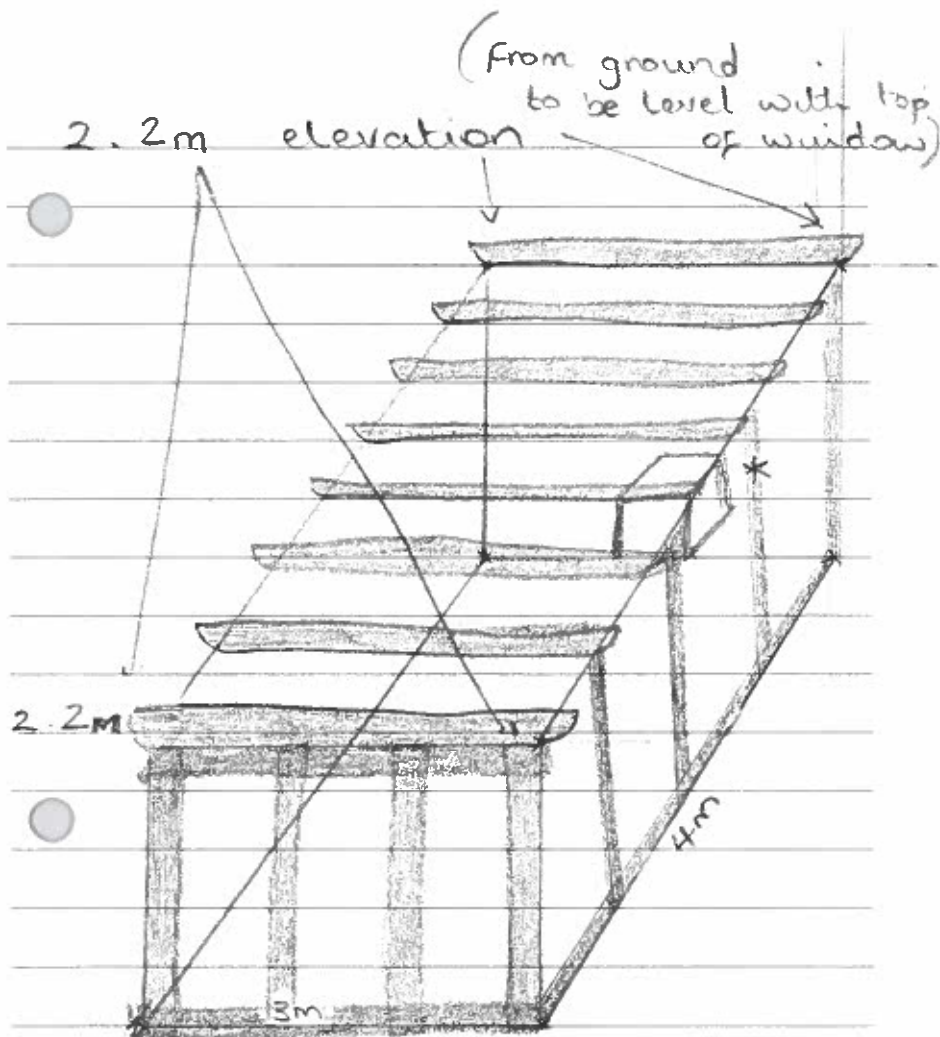 (from ground
to be level with top
of window)
2.2m elevation
*
2.2m
4m
3m